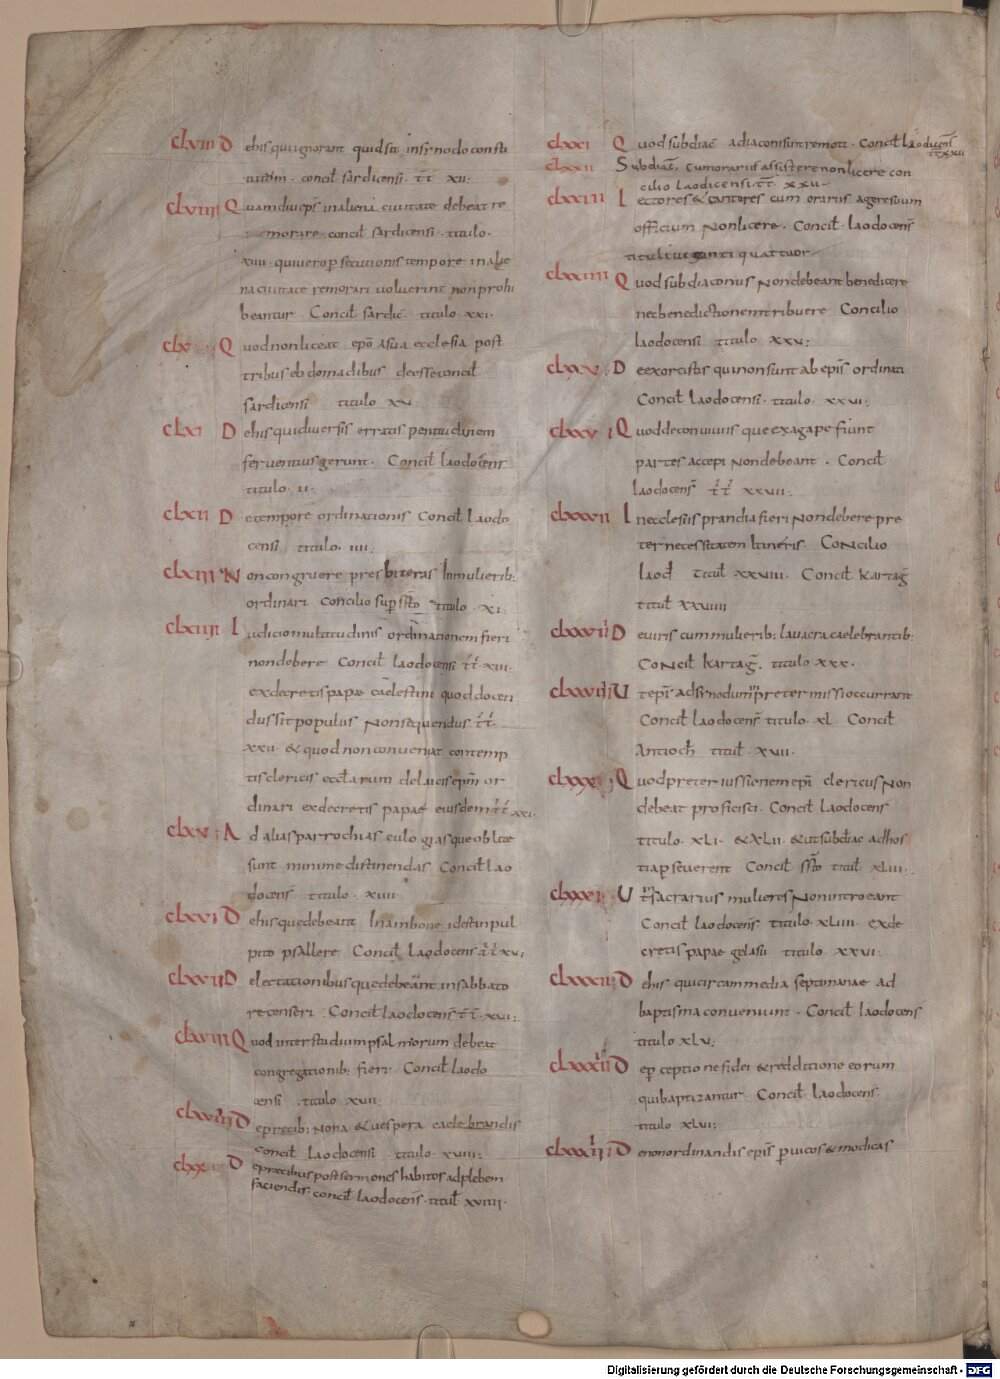 clviii D ehis qui ignorant quid sit in synodo consti
tutum . concil sardicensi . tt xii .
clviiii Q uamdiu eps in aliena civitate debeat re
morare concil sardicensi . titulo .
xiiii . qui vero p secutionis tempore in alie
na civitate remorari voluerint non prohi
beantur Concil sardic . titulo xxi .
clx . Q uod non liceat epo a sua ecclesia post
tribus ebdomadibus deesse concil
sardicensi titulo xv
clxi D ehis qui diversis erratis penitudinem
ferventius gerunt . Concil laodocens
titulo . ii .
clxii D e tempore ordinationis Concil laodo
censi titulo . iiii .
clxiii N on congruere presbiteras In mulierib;
ordinari Concilio sup scto titulo . xi .
clxiiii I udicio multitudinis ordinationem fieri
non debere Concil laodocensi tt xiii .
ex decretis papae caelestini quod docen
dus sit populus Non sequendus tt .
xxii . & quod non conveniat contemp
tis clericis ecclarum de laicis epm or
dinari ex decretis papae eiusdem tt xxi .
clxv . A d alias parrochias eulogias que oblate
sunt minime distinendas Concil lao
docens titulo . xiiii
clxvi D ehis que debeant In ambone id est in pul
pito psallere Concil laodocens tt xv ;
clxvii D e lectionibus que debeant in sabbato
recenseri . Concil laodocens tt . xvi :
clxviii Q uod inter studium psalmorum debeat
congregationib; fieri . Concil laodo
censi . titulo xvii :
clxviiii D e precib; Nona & uespera caelebrandis
concil laodocensi . titulo . xviii :
clxx D e precibus post sermones habitos ad plebem
faciendis : concil laodocens . titul xviiii .
clxxi Q uod subdiac a diaconi sint remoti . Concil laodicens
tt xxii
clxxii S ubdiac, cum orariis assistere non licere con
cilio laodicensi . tt xxii
clxxiii l ectores & cantores cum orariis ageresuum
officium Non licere . Concil laodocens
tituli viginti quattuor
clxxiiii Q uod subdiaconus Non debeant benedicere
nec benedictionem tribuere Concilio
laodocensi titulo xxv :
clxxv . D e exorcistis qui non sunt ab epis ordinati
Concil laodocensi . titulo . xxvi .
clxxvi Q uod de conviviis que ex agape fiunt
partes accepi Non debeant . Concil
laodocens tt xxvii .
clxxvii I n ecclesiis prandia fieri Non debere pre
ter necessitatem Itineris . Concilio
laod titul xxviii . Concil kartag
titul xxviiii
clxxviii D e viris cum mulierib; lavacra caelebrantib;
Concil kartag . titulo xxx .
clxxviiii U t epi ad synodum preter missi occurrant
Concil laodocens titulo . xl . Concil
Antioch titul . xvii .
clxxx . Q uod preter iussionem epi clericus Non
debeat proficisci . Concil laodocens
titulo . xli . & xlii . & ut subdiac ad hos
tia pseverent Concil scto titul xliii .
clxxxi . U t sacrarius mulieres Non introeant
Concil laodocens titulo . xliiii . ex de
cretis papae gelasii titulo . xxvi .
clxxxii . D ehis qui circa media septimanae ad
baptisma conveniunt . Concil laodocens
titulo xlv ;
clxxxiii D e pceptione fidei & redditione eorum
qui baptizantur . Concil laodocens
titulo xlvi ;
clxxxiiii D e non ordinandis epis p vicos & modicas
Digitalisierung gefördert durch die Deutsche Forschungsgemeinschaft - DFG